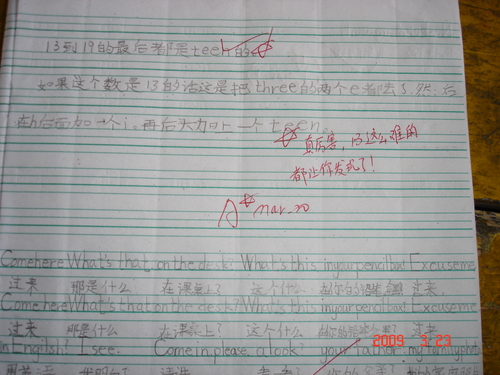 13到19的最后都是teen的
如果这个数是13的话这是把three的两个e都去了,然后
在h后面加一个i,再后头加上一个teen。
真厉害,这么难的
都让你发现了!
A Mar.20
Come here What's that on the desk? What's this in your pencil box? Excuse me
过来 那是什么 在课桌上? 这个什么 过来
Come here What's that on the desk? What's this in your pencil box? Excuse me
过来 那是什么 在课桌上? 这个什么 过来
2009 3 23
in English? I see. Come in, please. a look! your father? my family photo